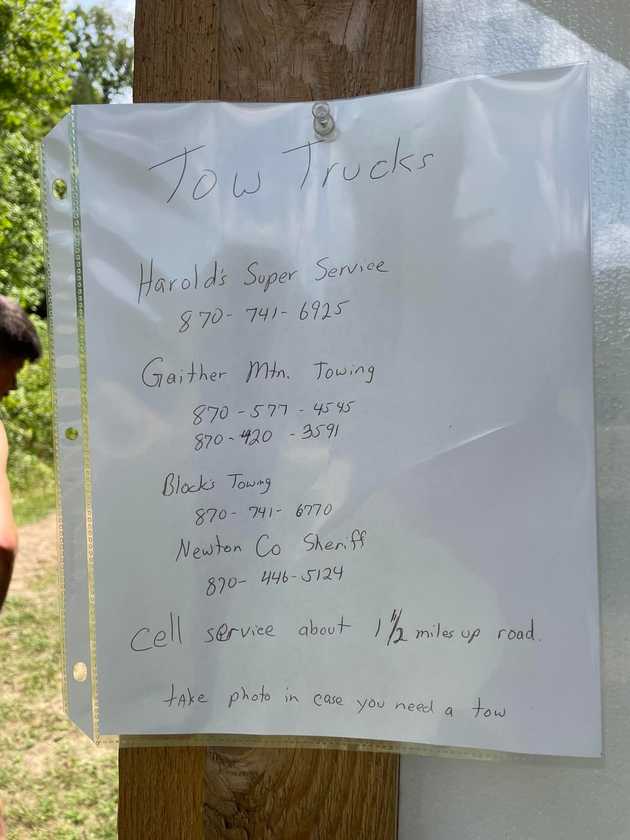 Tow Trucks
Harold's Super Service
870-741-6925
Gaither Mtn. Towing
870-577-4545
870-420-3591
Block's Towing
870-741-6770
Newton Co Sheriff
870-446-5124
Cell service about 1 1/2 miles up road.
tAke photo in case you need a tow